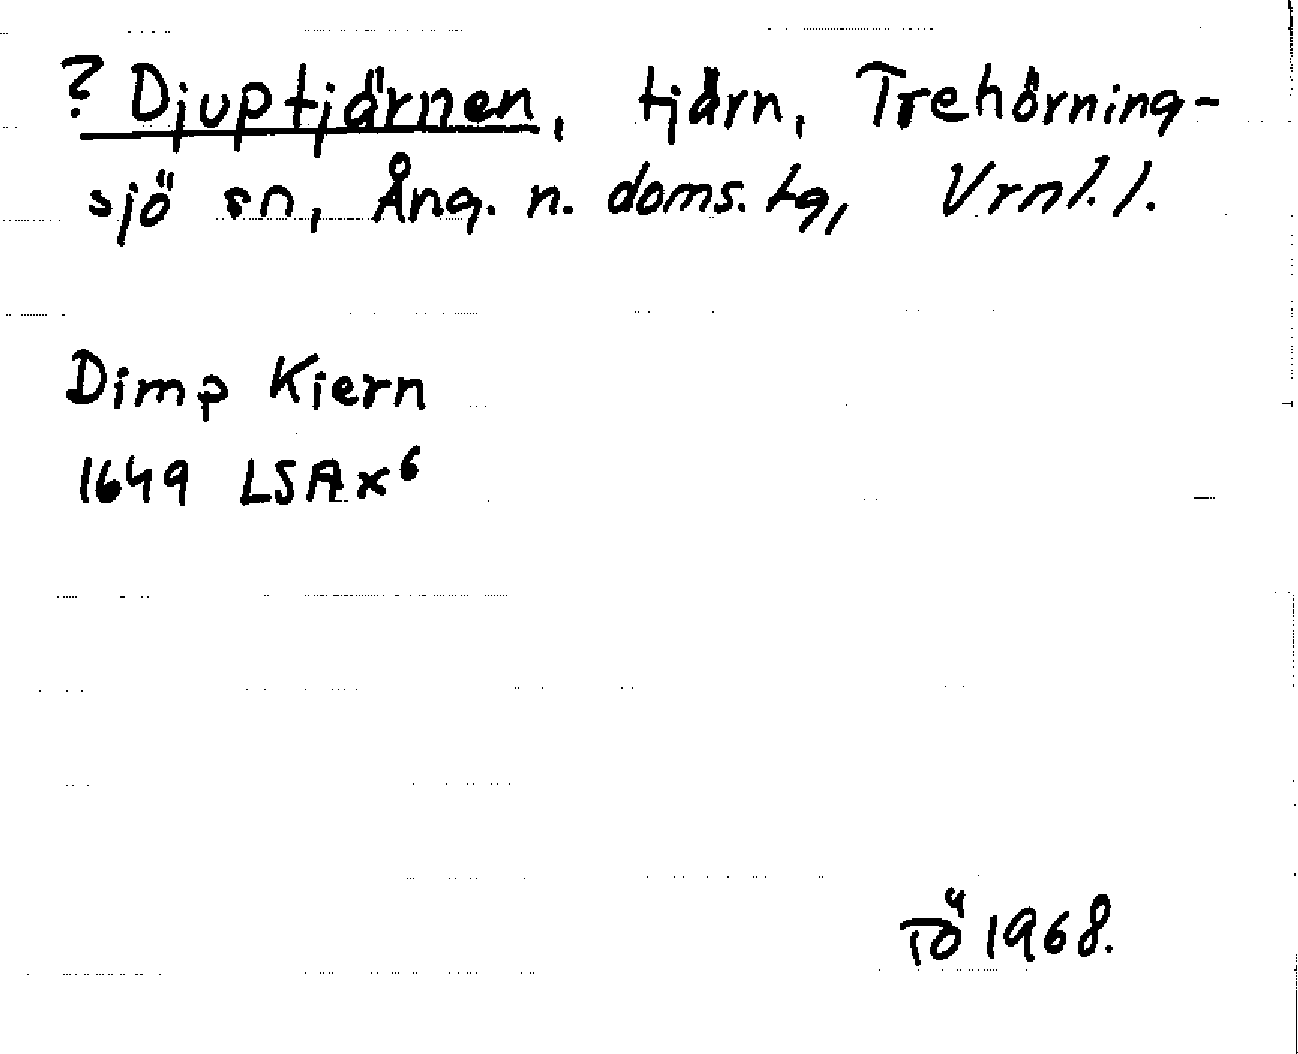 ? Djuptjärnen, tjärn, Trehörning-
sjö sn, Ång. n. doms. tg, Vrnl. l.
Dimp Kiern
1649 LSA x⁶
TÖ 1968.